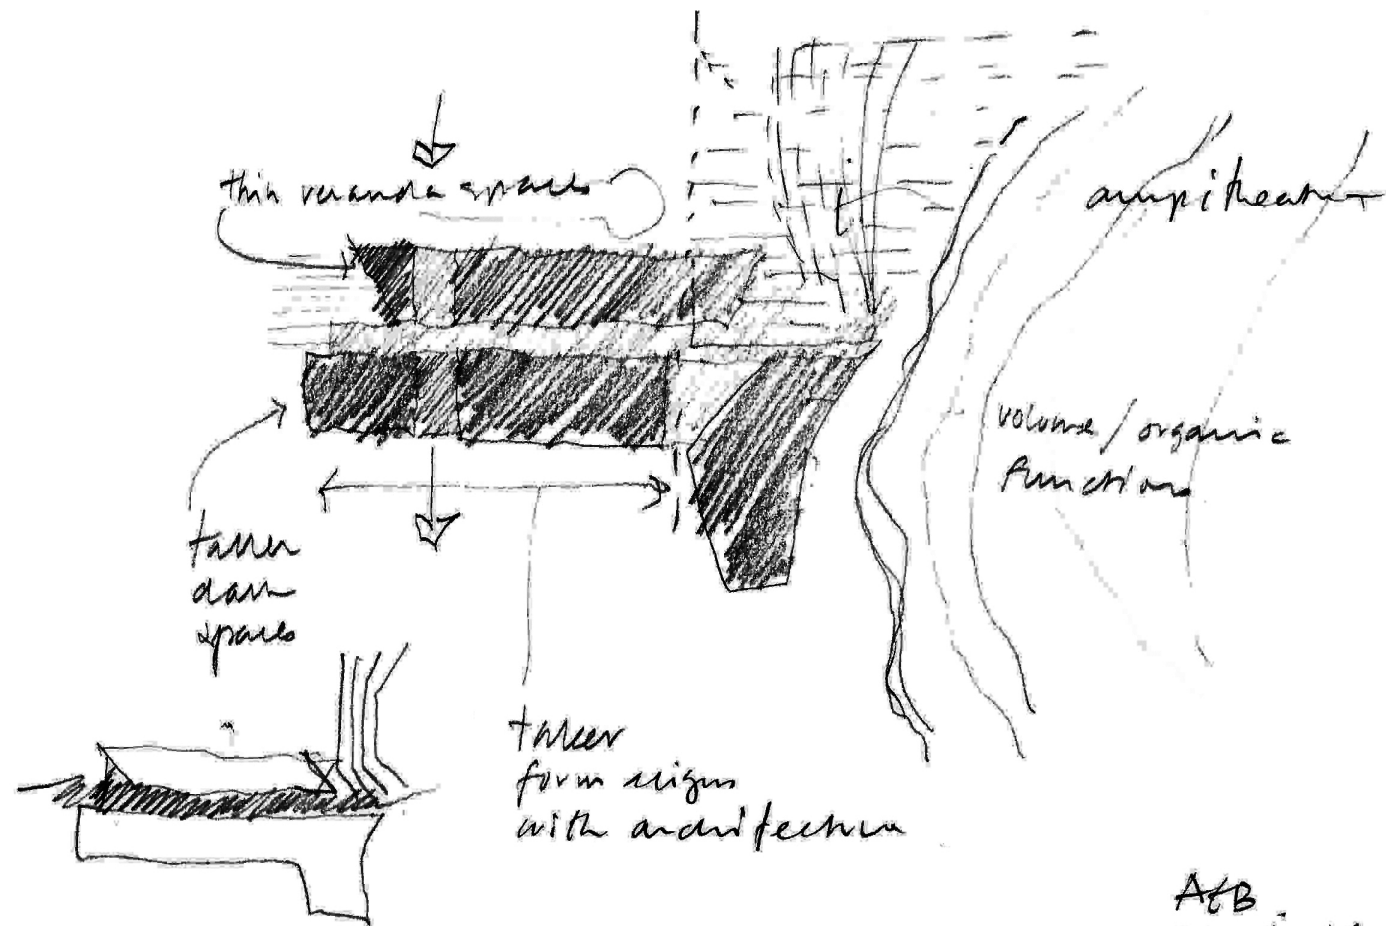 thin veranda spaces
ampitheatre
volume/organic
functions
taller
dark
spaces
taller
form aligns
with architecture
A&B